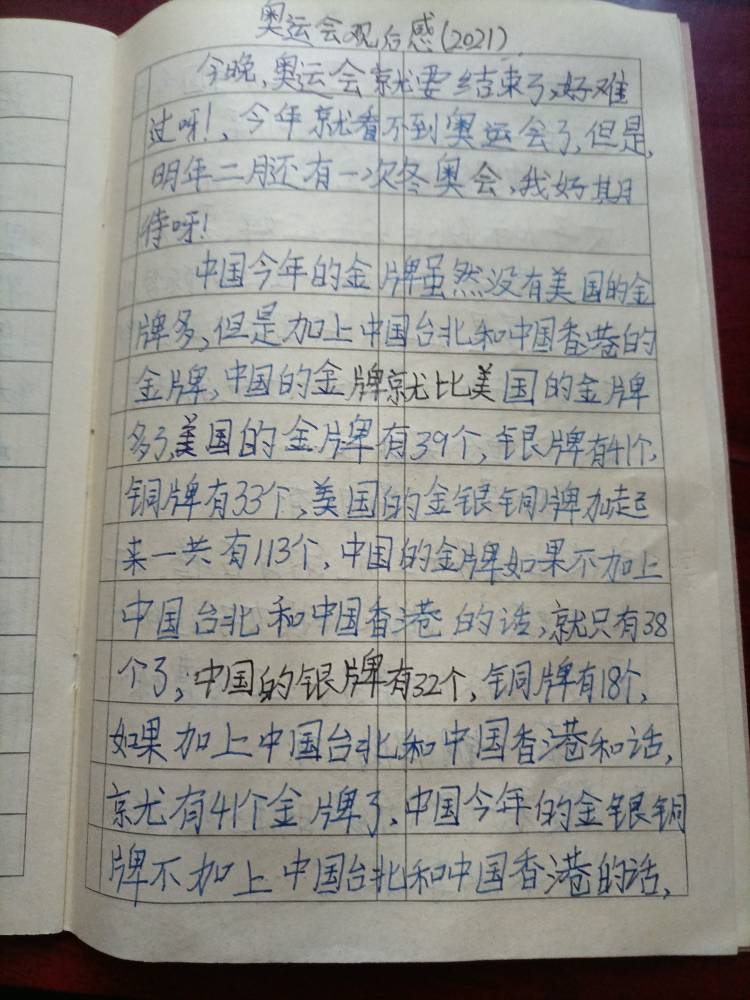 奥运会观后感(2021)
今晚,奥运会就要结束了,好难
过呀!,今年就看不到奥运会了,但是,
明年二月还有一次冬奥会,我好期
待呀!
中国今年的金牌虽然没有美国的金
牌多,但是加上中国台北和中国香港的
金牌,中国的金牌就比美国的金牌
多了,美国的金牌有39个,银牌有41个,
铜牌有33个,美国的金银铜牌加起
来一共有113个,中国的金牌如果不加上
中国台北和中国香港的话,就只有38
个了,中国的银牌有32个,铜牌有18个,
如果加上中国台北和中国香港和话,
就有41个金牌了,中国今年的金银铜
牌不加上中国台北和中国香港的话,